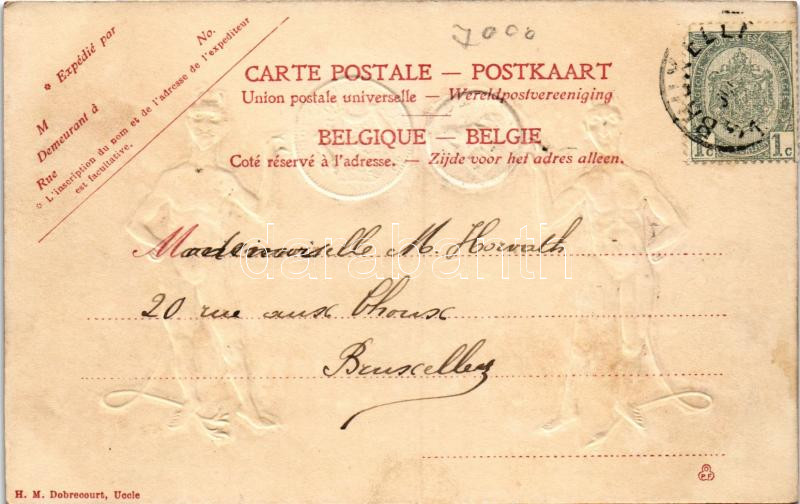 7000
* Expédié par
No.
M
Demeurant à
Rue
* L'inscription du nom et de l'adresse de l'expéditeur
est facultative.
CARTE POSTALE — POSTKAART
Union postale universelle — Wereldpostvereeniging
BELGIQUE — BELGIE
Coté réservé à l'adresse. — Zijde voor het adres alleen.
1c 1c
Mademoiselle M. Horvath
20 rue aux Choux
Bruxelles
darabanth
H. M. Dobrecourt, Uccle
P.F.